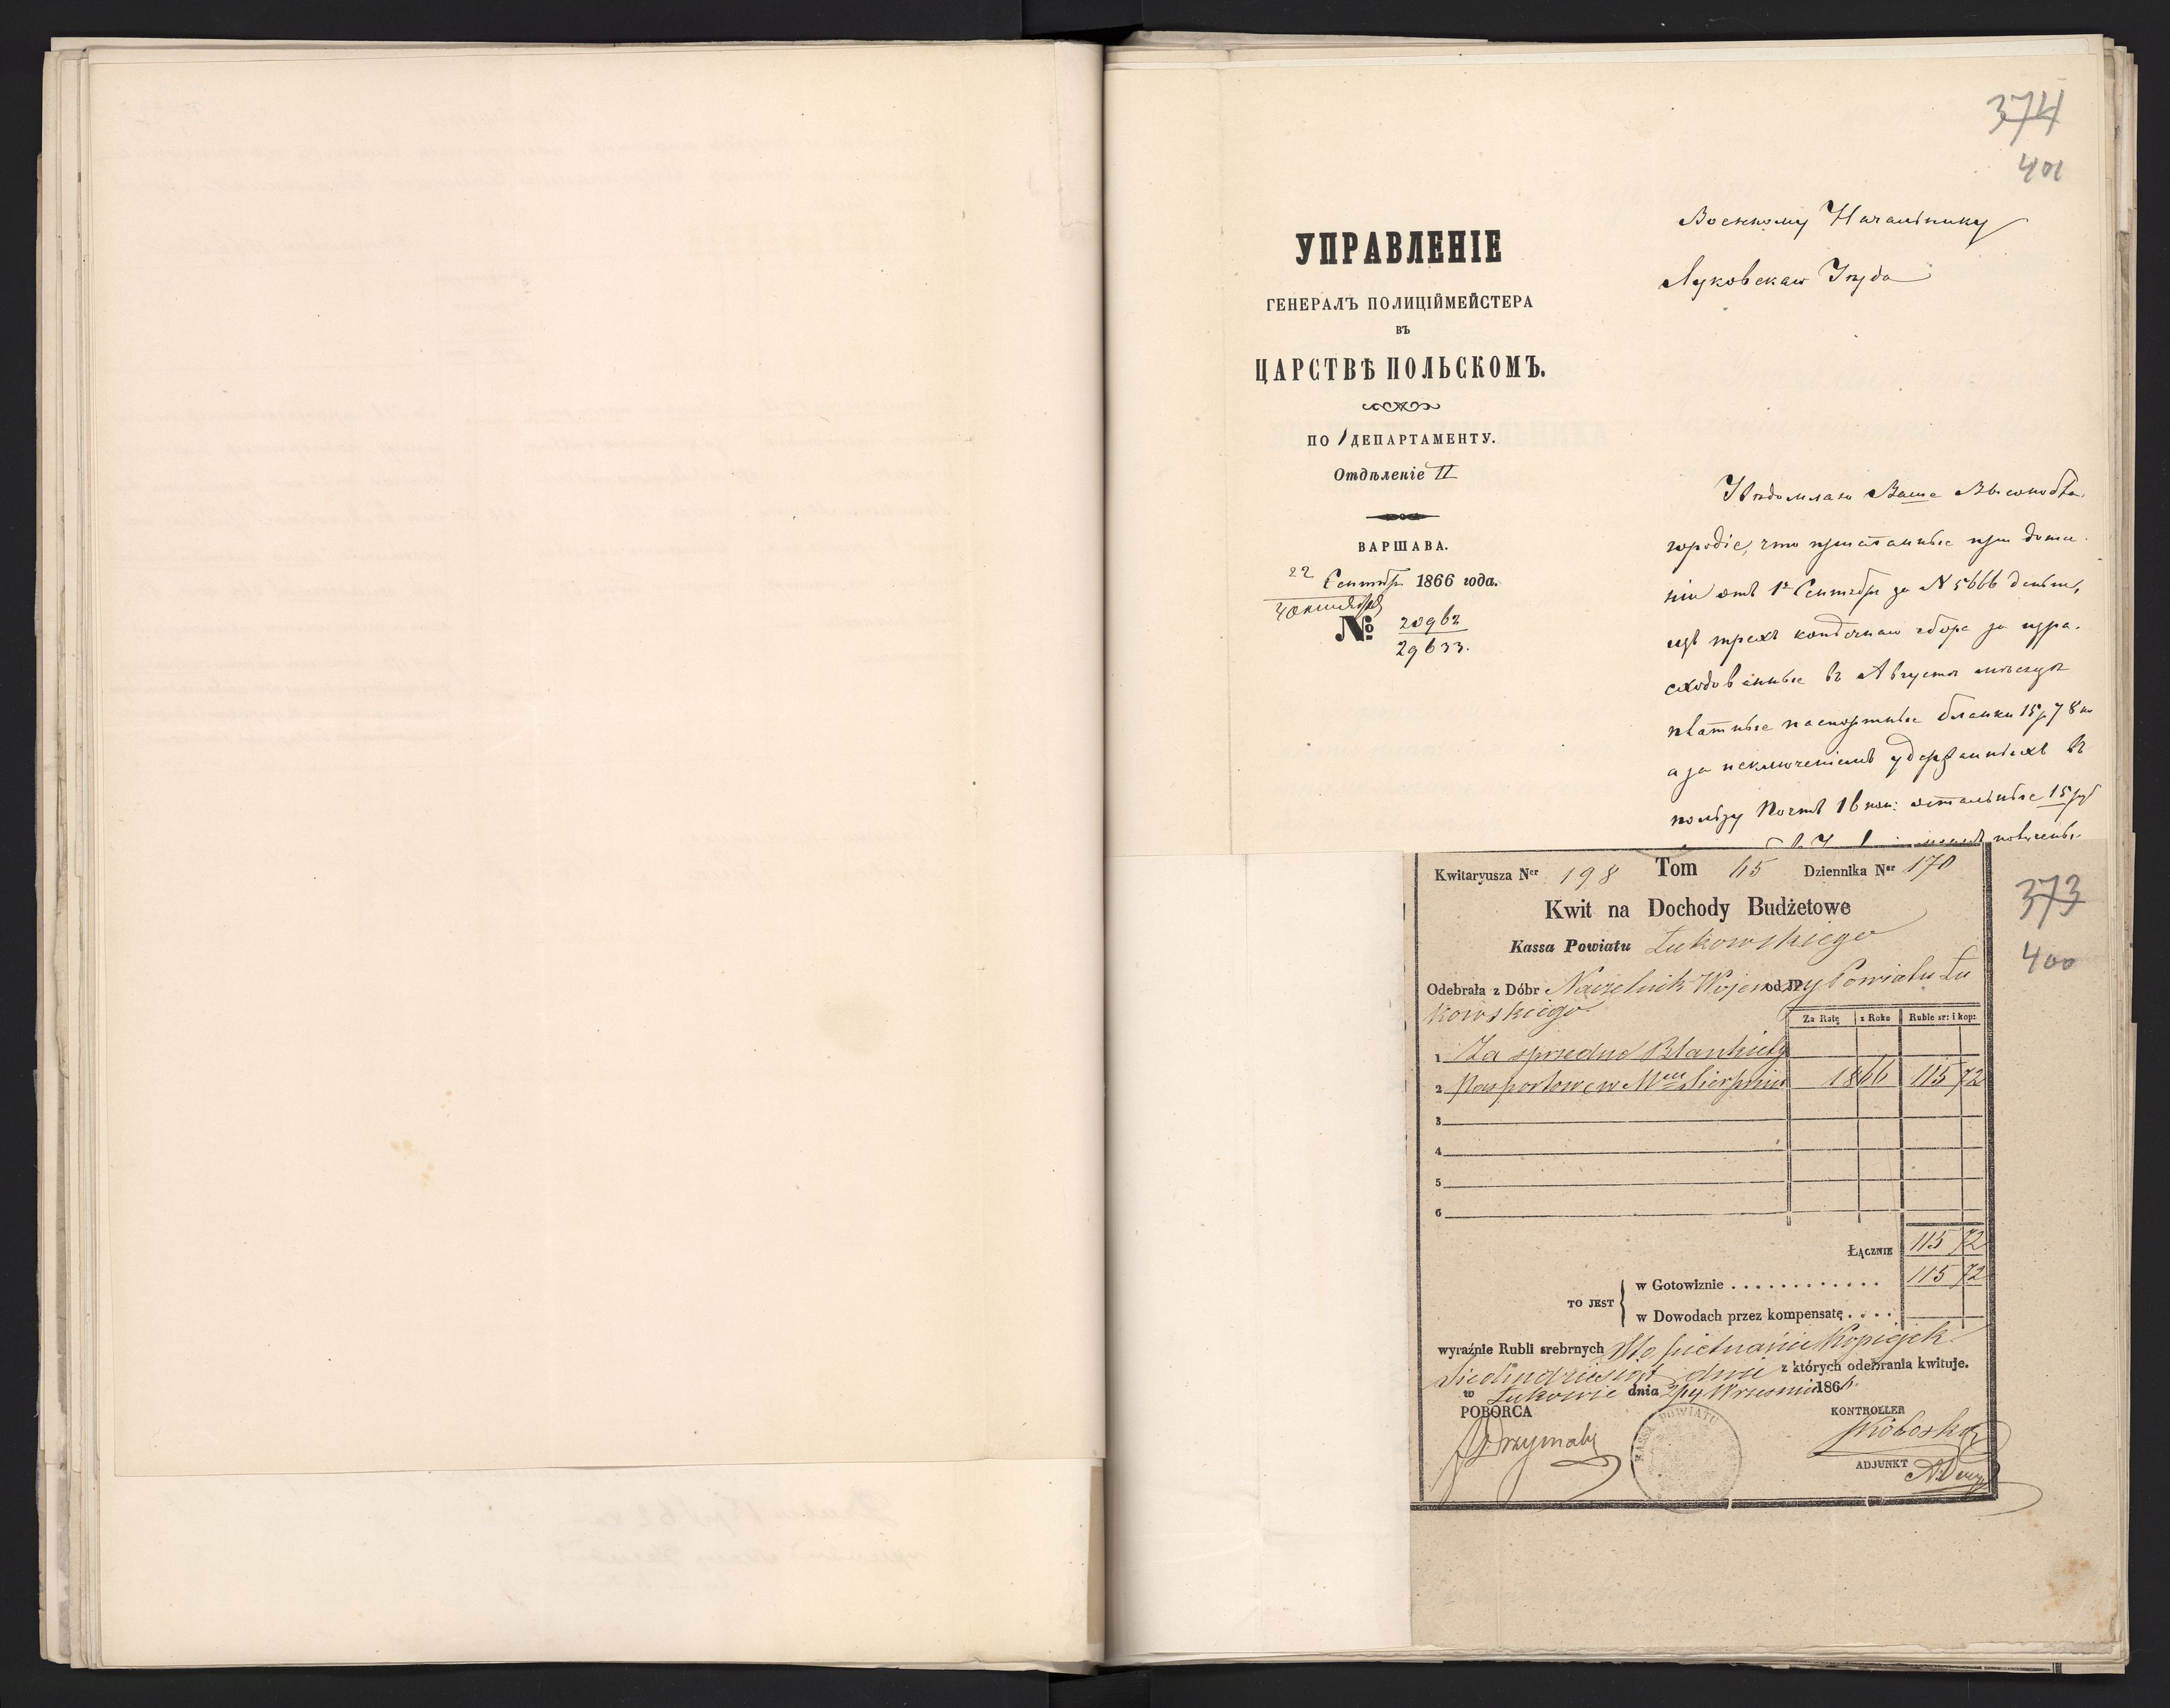 374
401
УПРАВЛЕНІЕ
ГЕНЕРАЛЪ ПОЛИЦІЙМЕЙСТЕРА
ВЪ
ЦАРСТВѢ ПОЛЬСКОМЪ.
ПО 1 ДЕПАРТАМЕНТУ.
Отдѣленіе II
ВАРШАВА.
22 Сентябр 1866 года.
4 октября
№ 20962
29633.
Военному Начальнику
Луковскаго Уѣзда
Увѣдомляю Ваше Высокобла-
городіе, что присланные при доне-
ніи отъ 1го Сентября за N 5666 деньги,
трехъ копѣечнаго сбора за изра-
сходованные въ Августѣ мѣсяцѣ
платные паспортные бланки 15 р 78 к
а за исключеніемъ удержанныхъ въ
пользу Почтъ 16 коп: остальные 15 руб
получены
Kwitaryusza Ner 198 Tom 45 Dziennika Ner 170
Kwit na Dochody Budżetowe
Kassa Powiatu Łukowskiego
373
400
Odebrała z Dóbr Naczelnik Wojenny od JP. Powiatu Łu
kowskiego
Za Ratę z Roku Ruble sr: i kop:
1 Za sprzedne Blankiety
2 Pasportowe w Mcu Sierpniu 1866 115 72
3
4
5
6
ŁĄCZNIE 115 72
TO JEST
w Gotowiznie . . . . . . . . . . . . 115 72
w Dowodach przez kompensatę . . . .
wyraźnie Rubli srebrnych Sto pietnaście Kopiejek
Siedmdziesiąt dwie z których odebrania kwituje.
w Łukowie dnia 2/14 Wrzesnia 1866.
POBORCA KONTROLLER
KASSA POWIATU
ADJUNKT